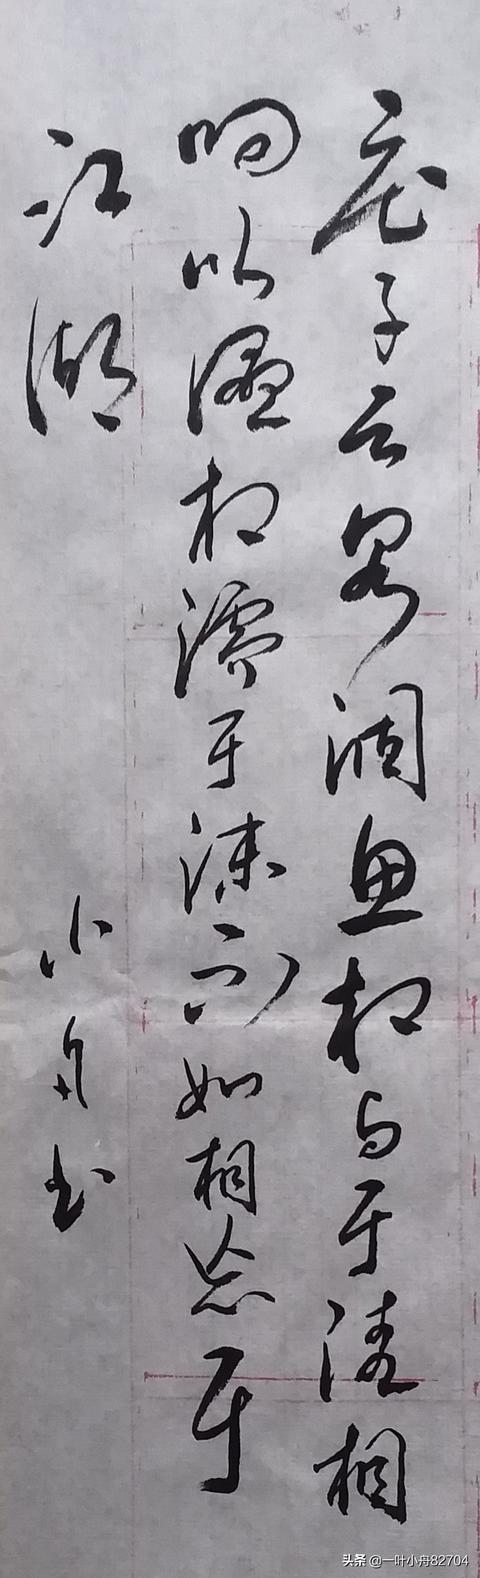 庄子云泉涸鱼相与于陆相
呴以湿相濡于沫不如相忘于
江湖
小舟书
头条 @一叶小舟82704